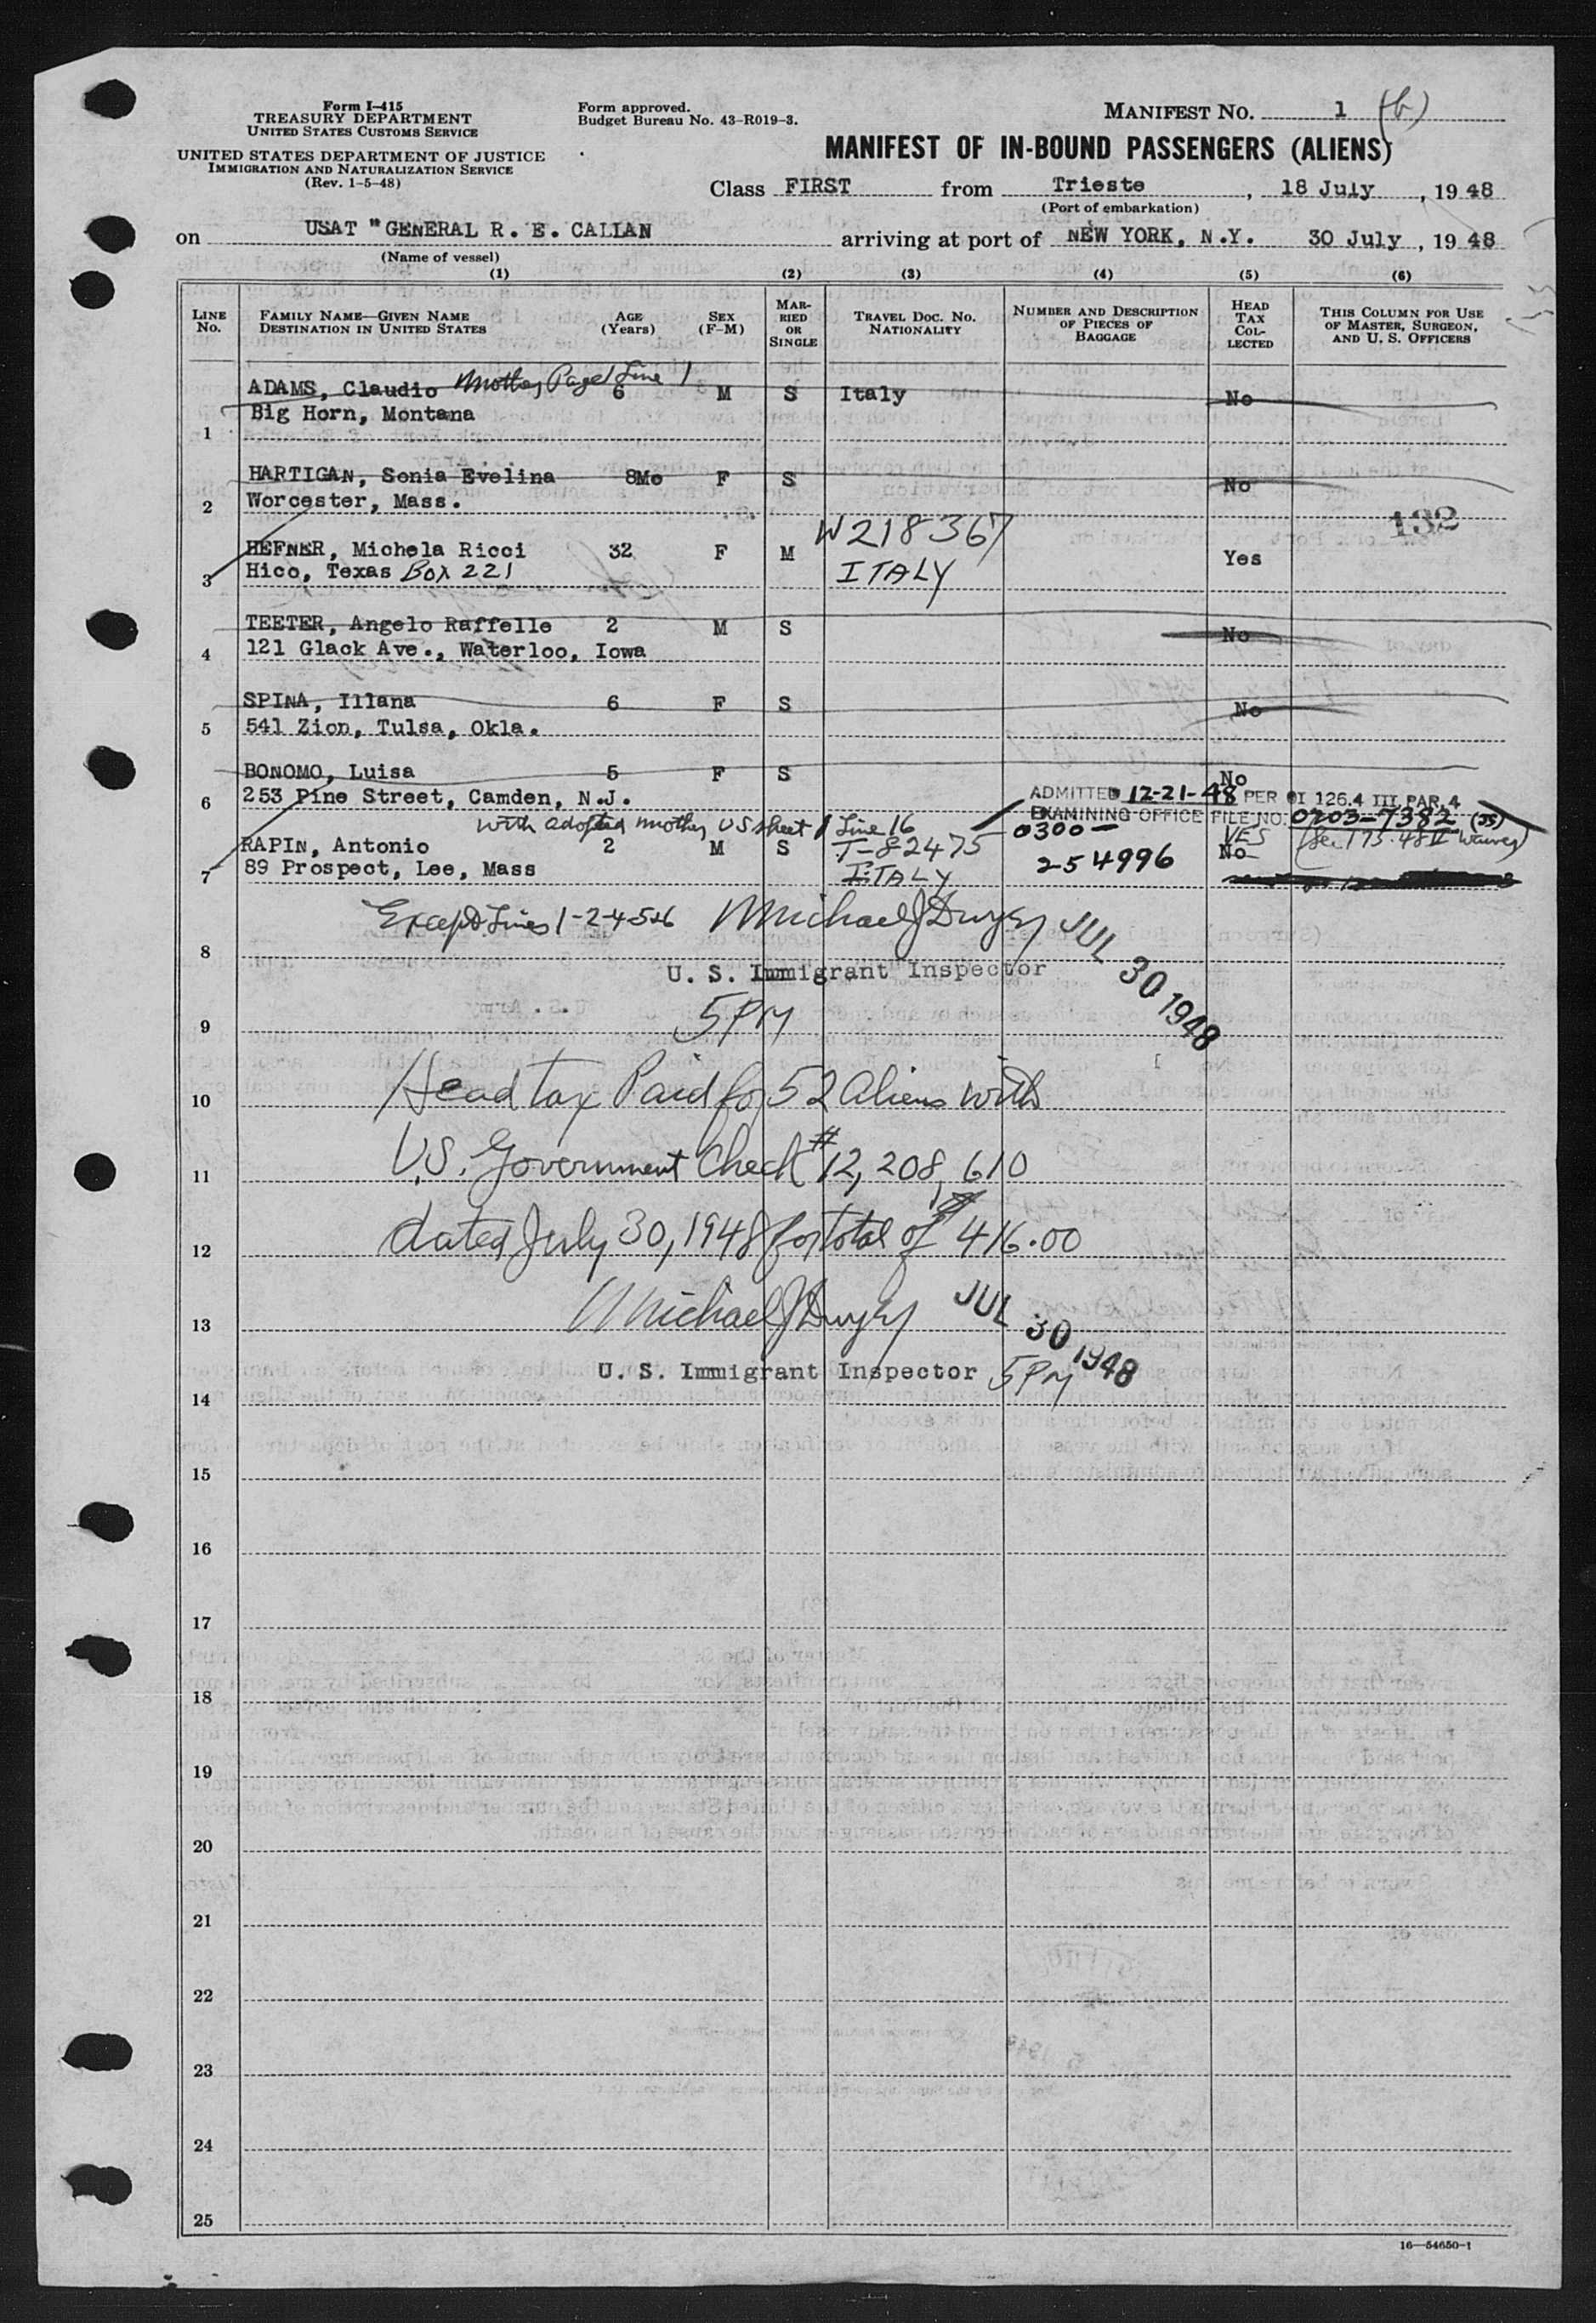 Form I-415
TREASURY DEPARTMENT
UNITED STATES CUSTOMS SERVICE
UNITED STATES DEPARTMENT OF JUSTICE
IMMIGRATION AND NATURALIZATION SERVICE
(Rev. 1-5-48)
Form approved.
Budget Bureau No. 43-R019-3.
MANIFEST NO. 1 (b)
MANIFEST OF IN-BOUND PASSENGERS (ALIENS)
Class FIRST from Trieste, 18 July, 1948
(Port of embarkation)
on USAT "GENERAL R. E. CALLAN arriving at port of NEW YORK, N.Y. 30 July, 1948
(Name of vessel)
(1) (2) (3) (4) (5) (6)
LINE NO.
FAMILY NAME—GIVEN NAME
DESTINATION IN UNITED STATES
AGE (Years)
SEX (F-M)
MARRIED OR SINGLE
TRAVEL DOC. NO.
NATIONALITY
NUMBER AND DESCRIPTION OF PIECES OF BAGGAGE
HEAD TAX COLLECTED
THIS COLUMN FOR USE OF MASTER, SURGEON, AND U. S. OFFICERS
ADAMS, Claudio Mother Page 1 Line 1 6 M S Italy No
1 Big Horn, Montana
HARTIGAN, Sonia Evelina 8Mo F S No
2 Worcester, Mass.
132
HEFNER, Michela Ricci 32 F M W218367 Yes
3 Hico, Texas Box 221 ITALY
TEETER, Angelo Raffelle 2 M S No
4 121 Glack Ave., Waterloo, Iowa
SPINA, Illana 6 F S No
5 541 Zion, Tulsa, Okla.
BONOMO, Luisa 5 F S No
6 253 Pine Street, Camden, N.J.
ADMITTED 12-21-48 PER OI 126.4 III PAR. 4
EXAMINING OFFICE FILE NO. 0203-7382 (JS)
with adopted mother US sheet 1 Line 16
RAPIN, Antonio 2 M S T-82475 0300- YES No (Sec 175.48 Waived)
7 89 Prospect, Lee, Mass ITALY 254996
Except Lines 1-2-4-5&6 Michael J Dwyer JUL 30 1948
8
U. S. Immigrant Inspector
9 5PM
10 Head tax Paid for 52 Aliens with
11 U.S. Government Check #12,208,610
12 dated July 30, 1948 for total of $416.00
13 Michael J Dwyer JUL 30 1948
U. S. Immigrant Inspector 5PM
14
15
16
17
18
19
20
21
22
23
24
25
16—54650-1